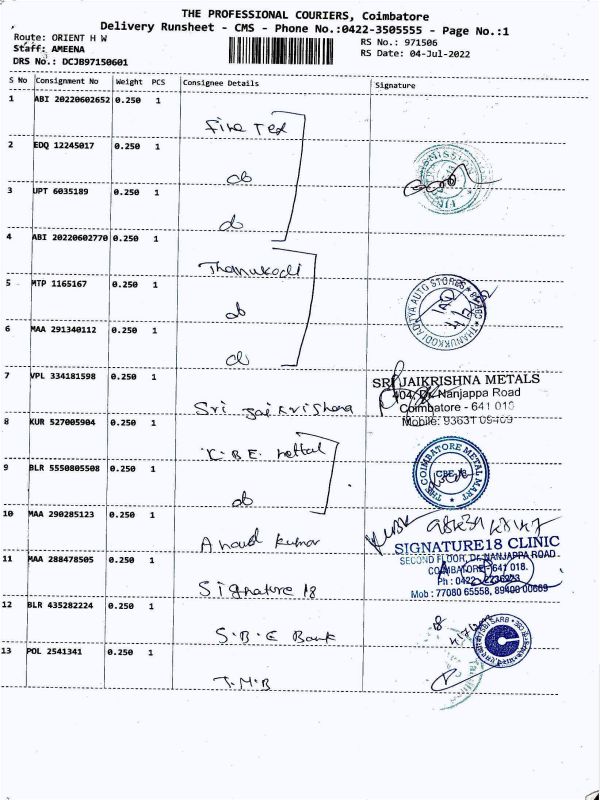 THE PROFESSIONAL COURIERS, Coimbatore
Delivery Runsheet - CMS - Phone No.:0422-3505555 - Page No.:1
Route: ORIENT H W
RS No.: 971506
Staff: AMEENA
RS Date: 04-Jul-2022
DRS No.: DCJB97150601
S No Consignment No Weight PCS Consignee Details Signature
1 ABI 20220602652 0.250 1
Fire Tex
2 EDQ 12245017 0.250 1
do
3 UPT 6035189 0.250 1
do
4 ABI 20220602770 0.250 1
Thanukodi
5 MTP 1165167 0.250 1
do
THANUKKODI ADITYA AUTO STORES
6 MAA 291340112 0.250 1
do
7 VPL 334181598 0.250 1
Sri Jai Krishana
SRI JAIKRISHNA METALS
404, Dr. Nanjappa Road
Coimbatore - 641 018
Mobile: 93631 09409
8 KUR 527005904 0.250 1
C.B.E. Mettal
9 BLR 5550805508 0.250 1
do
THE COIMBATORE METAL MART
CBE-18
10 MAA 290285123 0.250 1
Anand Kumar
11 MAA 288478505 0.250 1
Signature 18
SIGNATURE18 CLINIC
SECOND FLOOR, Dr. NANJAPPA ROAD
COIMBATORE - 641 018.
Ph : 0422
Mob : 77080 65558, 89400 00669
12 BLR 435282224 0.250 1
S.B.E Bank
13 POL 2541341 0.250 1
T.M.B